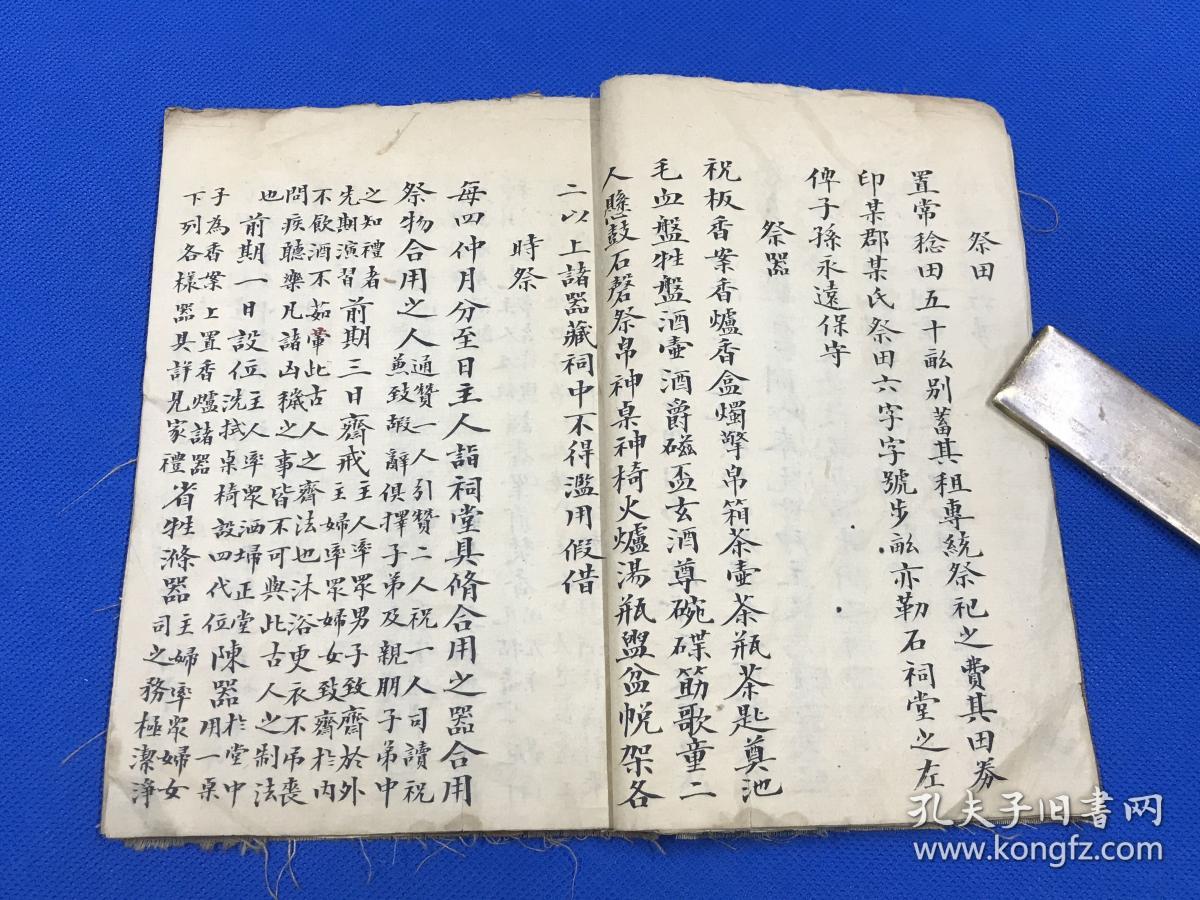 祭田
置常稔田五十畝別蓄其租專統祭祀之費其田券
印某郡某氏祭田六字字號步畝亦勒石祠堂之左
俾子孫永遠保守
祭器
祝板香案香爐香盒燭擎帛箱茶壺茶瓶茶匙奠池
毛血盤牲盤酒壺酒爵磁盃玄酒尊碗碟筯歌童二
人懸鼓石磬祭帛神桌神椅火爐湯瓶盥盆帨架各
二以上諸器藏祠中不得濫用假借
時祭
每四仲月分至日主人詣祠堂具脩合用之器合用
祭物合用之人通贊一人引贊二人祝一人司讀祝
兼致嘏辭俱擇子弟及親朋子弟中
之知禮者
先期演習前期三日齊戒主人率眾男子致齊於外
主婦率眾婦女致齊於內
不飲酒不茹葷此古人之齊法也沐浴更衣不吊喪
問疾聽樂凡諸凶穢之事皆不可與此古人之制法
也前期一日設位主人率眾洒埽正堂
洗拭桌椅設四代位陳器用一桌於堂中
子為香案上置香爐諸器
下列各樣器具詳見家禮省牲滌器主婦率眾婦女
司之務極潔淨
孔夫子旧书网
www.kongfz.com